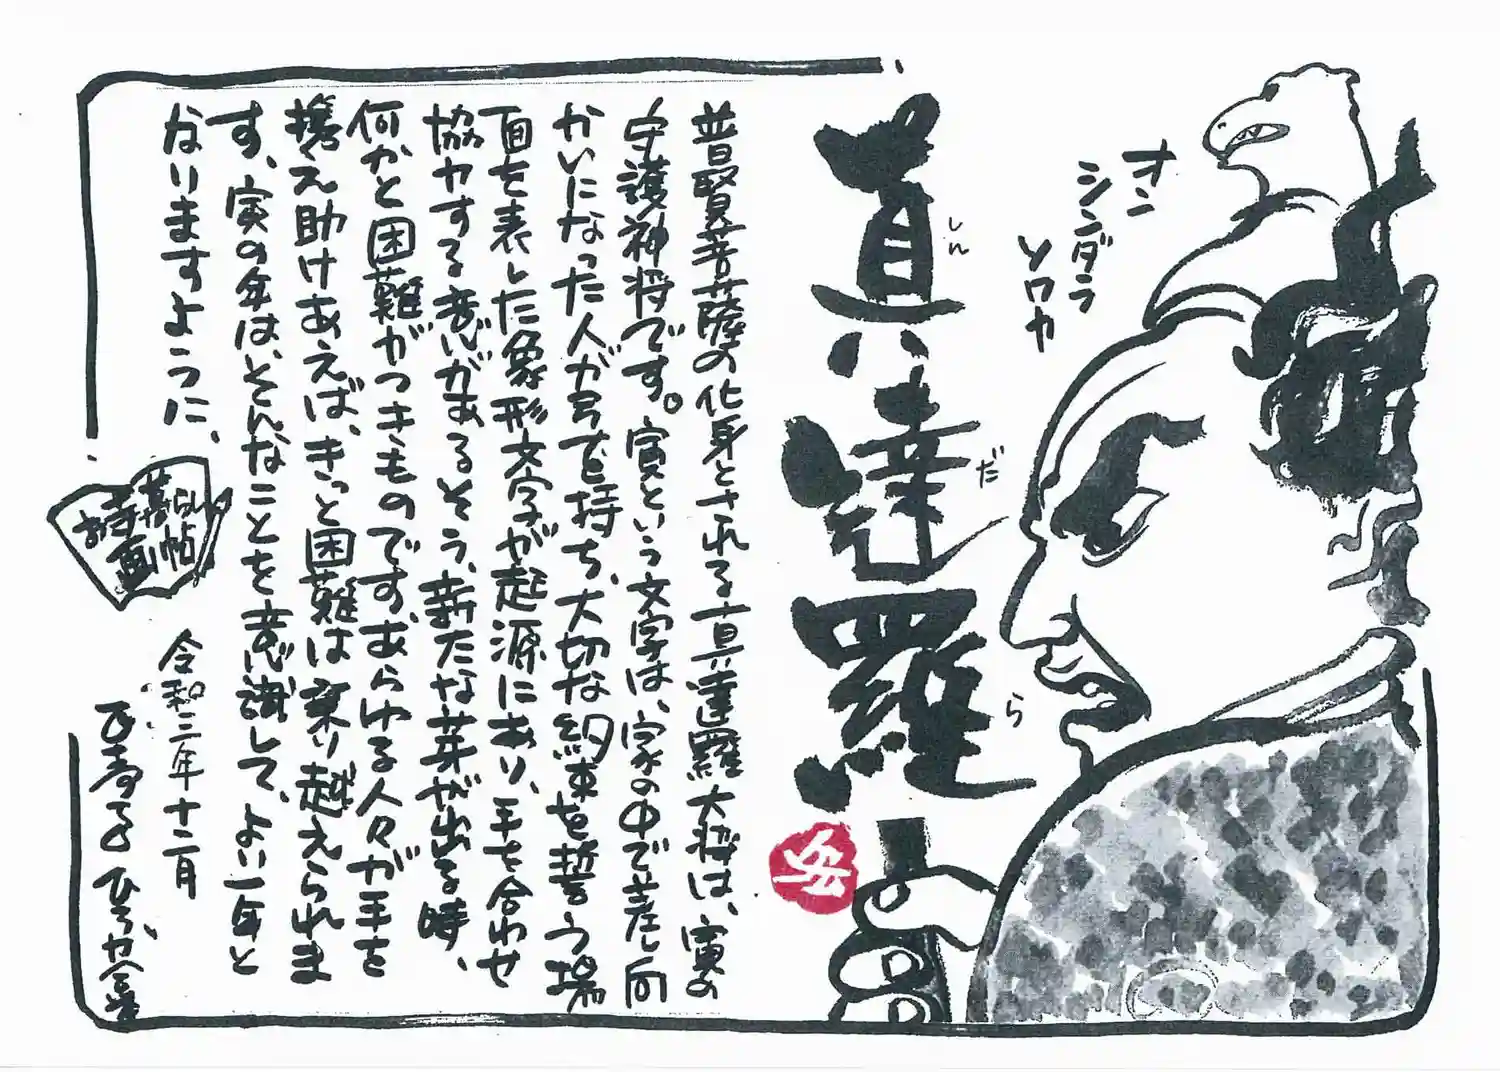 オン
シンダラ
ソワカ
真達羅
しんだら
普賢菩薩の化身とされる真達羅大将は、寅の
守護神将です。寅という文字は、家の中で差し向
かいになった人が弓を持ち、大切な約束を誓う場
面を表した象形文字が起源にあり、手を合わせ
協力する意があるそう。新たな芽が出る時、
何かと困難がつきものです。あらゆる人々が手を
携え助けあえば、きっと困難は乗り越えられま
す、寅の年は、そんなことを意識して、よい一年と
なりますように、
お寺暮らし
画帖
令和三年十二月
ひろか